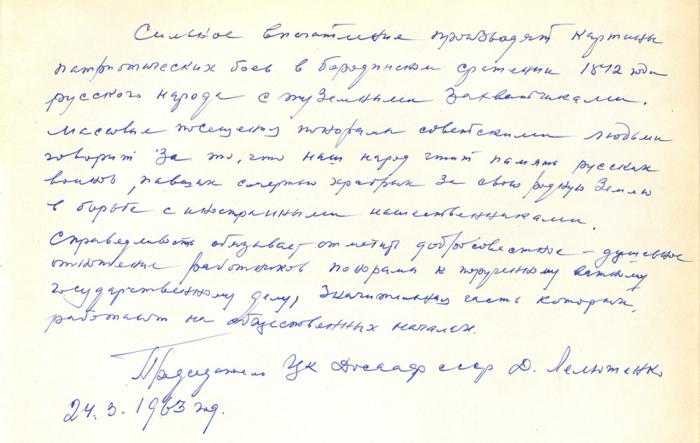 Сильное впечатление производят картины
патриотических боев в бородинском сражении 1812 года
русского народа с чуземными захватчиками.
Массовые посещения панорамы советскими людьми
говорит за то, что наш народ чтит память русских
воинов, павших смертью храбрых за свою родную землю
в борьбе с иностранными нашественниками.
Справедливость обязывает отметить добросовестное – душевное
отношение работников панорамы к порученному важному
государственному делу, значительная часть которых,
работают на общественных началах.
Председатель ЦК Досааф ссср Д. Лелюшенко
24.3.1963 год.